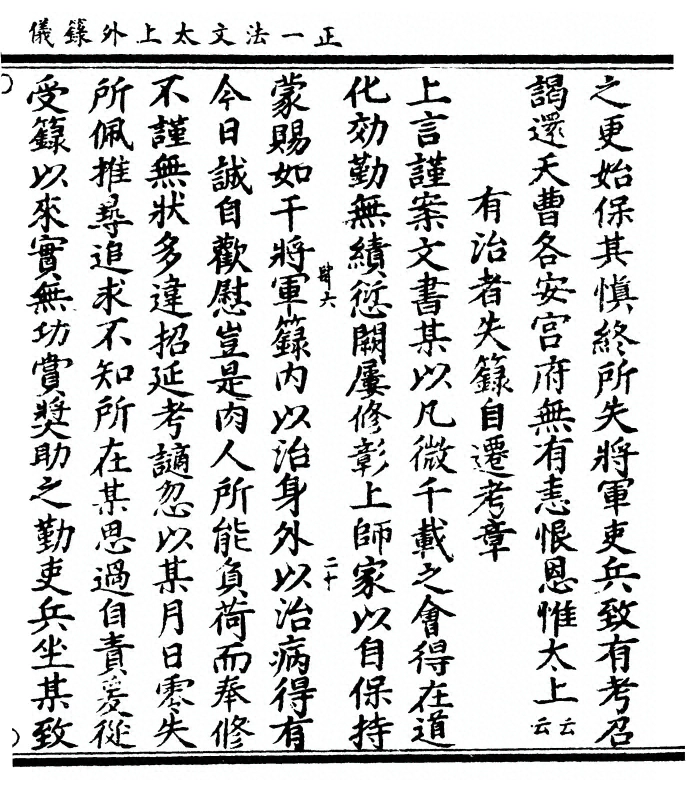 正一法文太上外籙儀
之更始保其慎終所失將軍吏兵致有考召
謁還天曹各安宮府無有恚恨恩惟太上云云
有治者失籙自遷考章
上言謹案文書某以凡微千載之會得在道
化効勤無績愆闕屢修彰上師家以自保持
肆六 二十
蒙賜如干將軍籙內以治身外以治病得有
今日誠自歡慰豈是肉人所能負荷而奉修
不謹無狀多違招延考謫忽以某月日零失
所佩推尋追求不知所在某思過自責爰從
受籙以來實無功賞獎助之勤吏兵坐某致